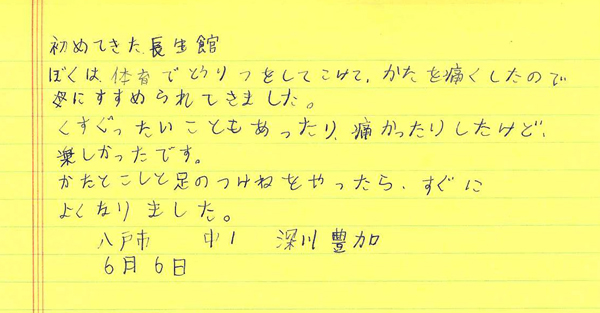 初めてきた、長生館
ぼくは、体育でとうりつをしてこけて、かたを痛くしたので
にすすめられてきました。
くすぐったいこともあったり、痛かったりしたけど、
楽しかったです。
かたとこしと足のつけねをやったら、すぐに
よくなりました。
八戸市 中1 深川豊加
6月6日